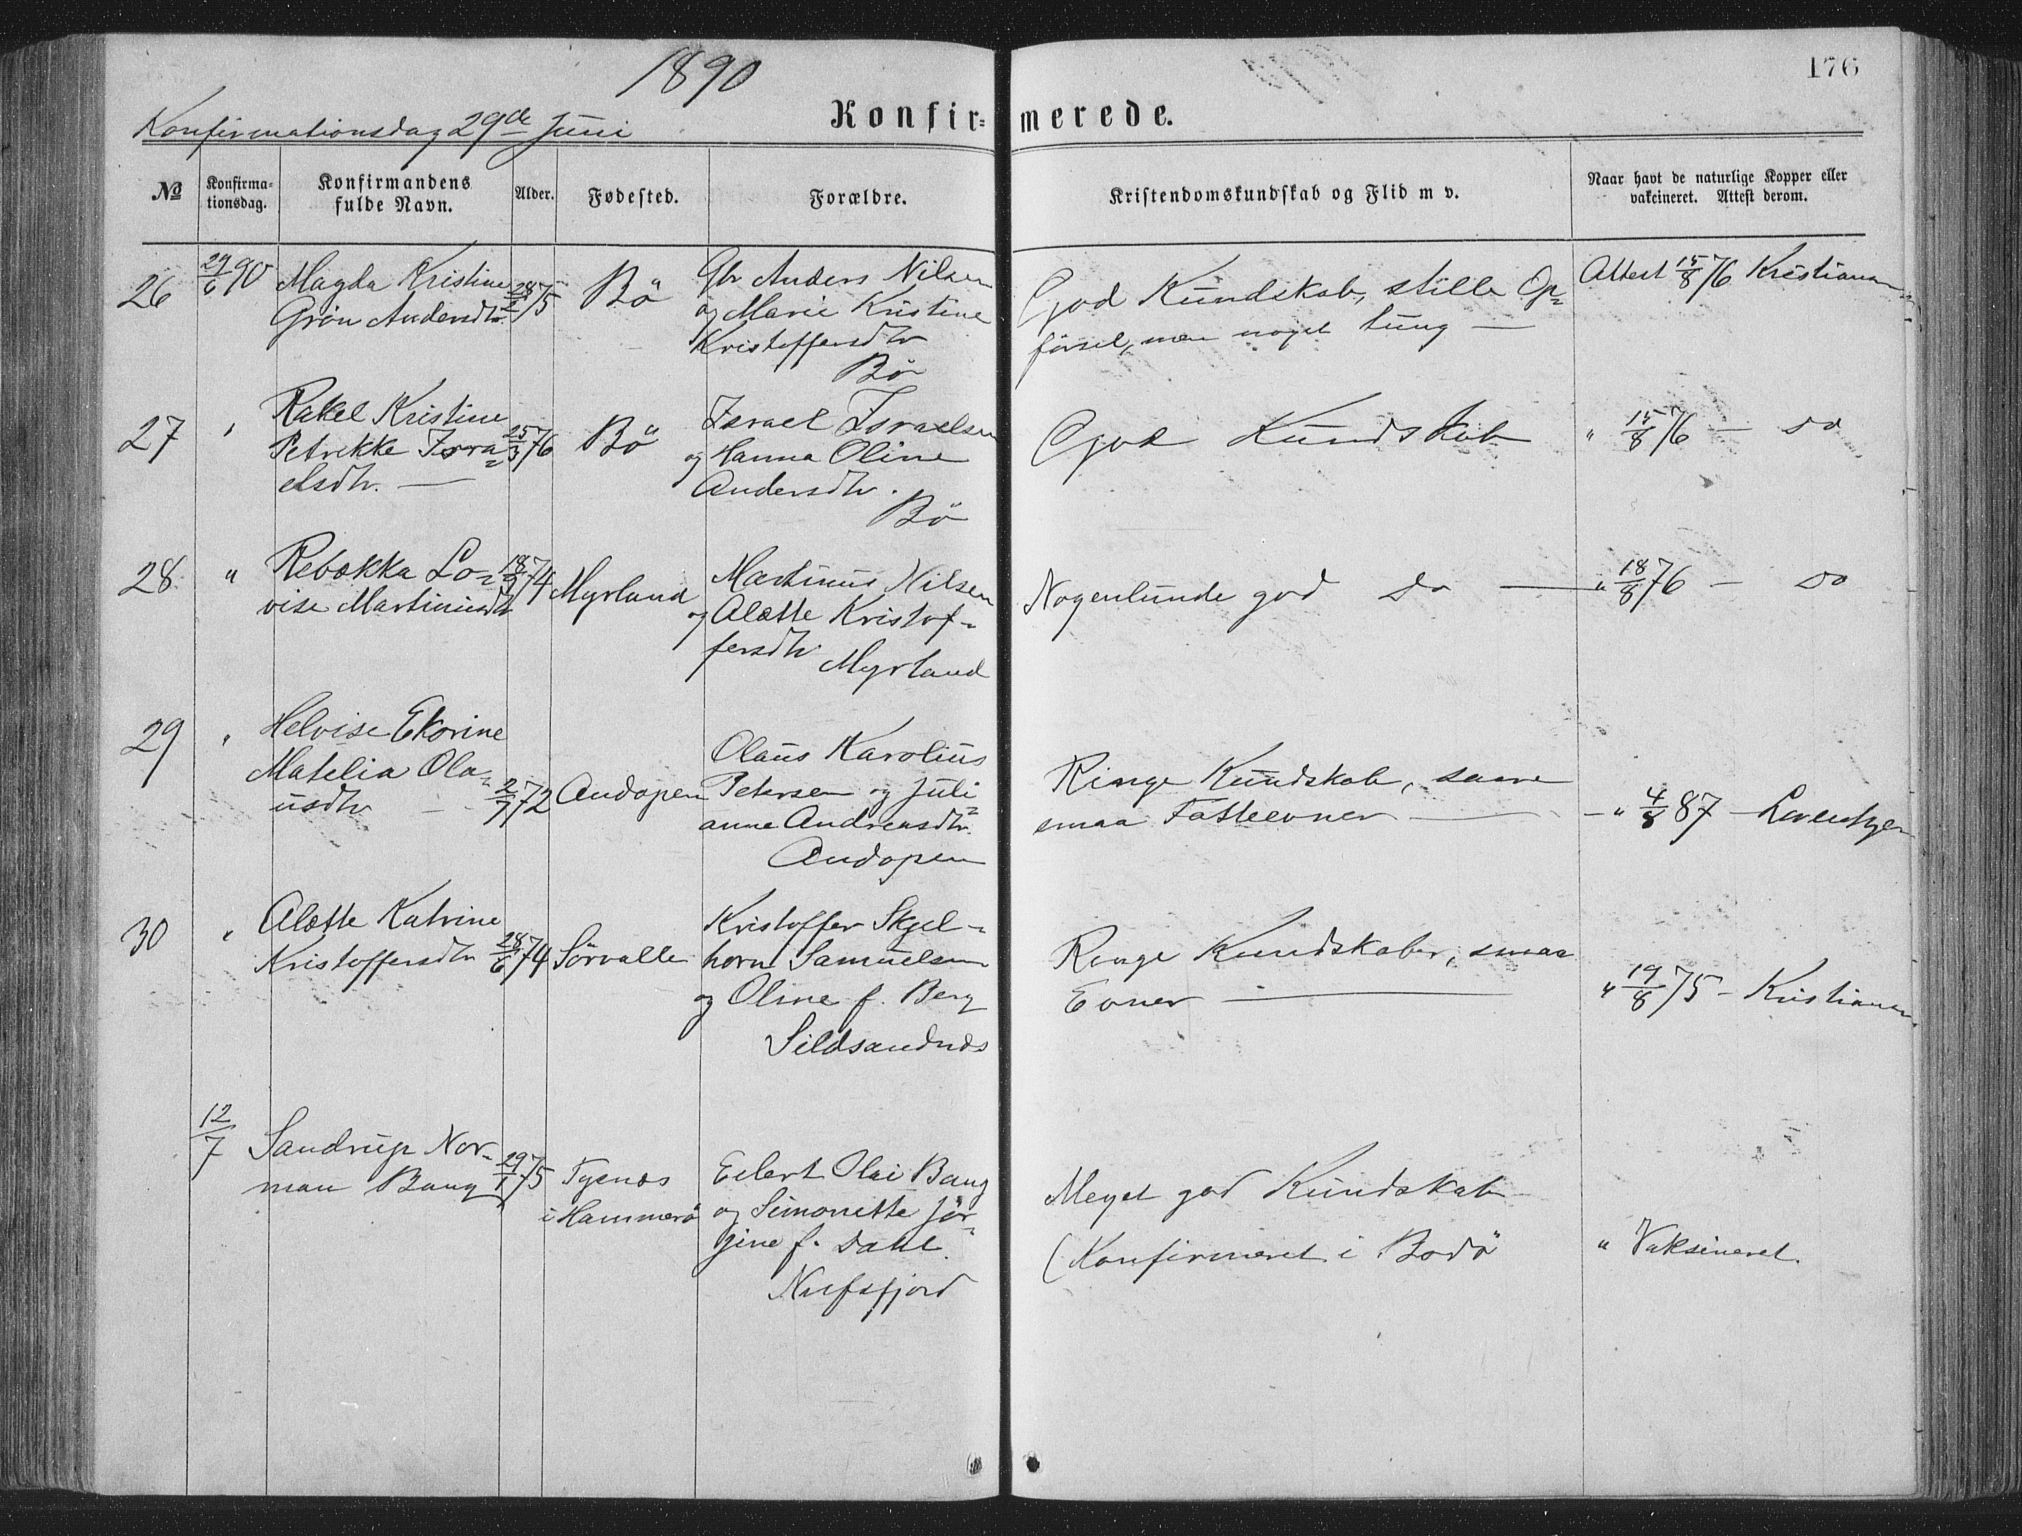 1890
176
Konfirmationsdag 29de Juni
Konfir=
merede.
No
Konfirma=
tionsdag.
Konfirmandens
fulde Navn.
Alder.
Fødested.
Forældre.
Kristendomskundskab og Flid m v.
Naar havt de naturlige Kopper eller
vakcineret. Attest derom.
26 29/6 90 Magda Kristine
Grön Andersdtr
28/2 75
Bö
Gbr Anders Nilsen
og Marie Kristine
Kristoffersdtr
Bö
God Kundskab, stille Op=
försel, men noget tung —
Attest 15/8 76 Kristiansen
27 " Rakel Kristine
Petrikke Isra=
elsdtr. —
25/3 76
Bö
Israel Israelsen
og Hanna Oline
Andersdtr.
Bö
God Kundskab
" 15/8 76 — do
28 " Rebækka Lo=
vise Martinusdtr
18/9 74
Myrland
Martinus Nilsen
og Alætte Kristof=
fersdtr
Myrland
Nogenlunde god do —
" 18/8 76 — do
29 " Helvise Ekorine
Matelia Ola=
usdtr —
2/7 72
Andopen
Olaus Karolius
Petersen og Juli=
anne Andreasdtr.
Andopen
Ringe Kundskab, saare
smaa Fatteevner —
— " 4/8 87 —
30 " Alætte Katrine
Kristoffersdtr
28/6 74
Sörvalle
Kristoffer Skjel=
horn Samuelsen
og Oline f. Berg
Sildsandnæs
Ringe Kundskaber, smaa
Evner —
" 19/8 75 — Kristiansen
12/7 Sandrup Nor=
man Bang
29/1 75
Tysnæs
i Hammerö
Eilert Olai Bang
og Simonette Jör=
gine f. Dahl.
Nusfjord
Meget god Kundskab
(Konfirmeret i Bodö
" Vaksineret.